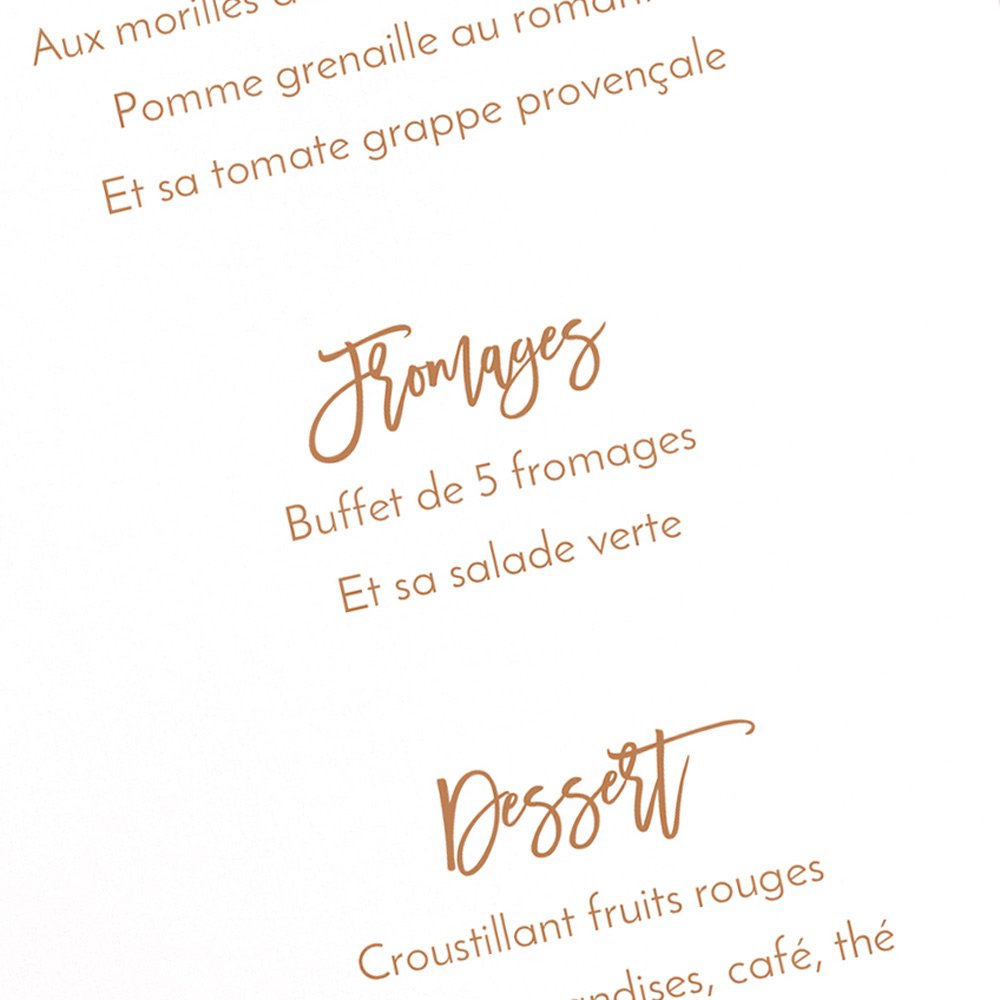 Aux morilles
Pomme grenaille au
Et sa tomate grappe provençale
Fromages
Buffet de 5 fromages
Et sa salade verte
Dessert
Croustillant fruits rouges
café, thé